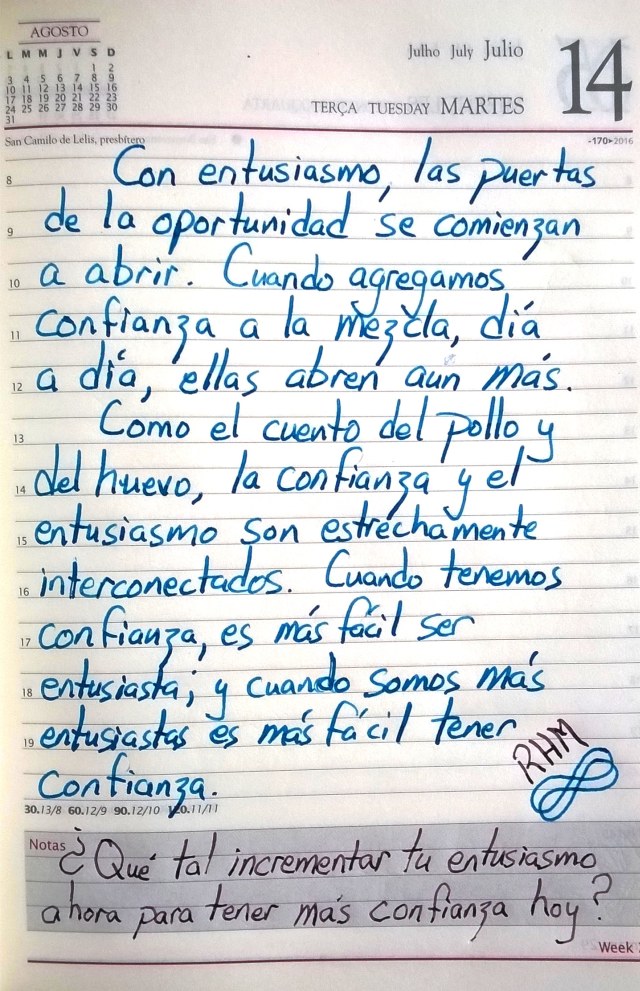 AGOSTO
L M M J V S D
1 2
3 4 5 6 7 8 9
10 11 12 13 14 15 16
17 18 19 20 21 22 23
24 25 26 27 28 29 30
31
Julho July Julio
14
TERÇA TUESDAY MARTES
San Camilo de Lelis, presbítero
-170>2016
8 Con entusiasmo, las puertas
9 de la oportunidad se comienzan
10 a abrir. Cuando agregamos
11 confianza a la mezcla, día
12 a día, ellas abren aun más.
13 Como el cuento del pollo y
14 del huevo, la confianza y el
15 entusiasmo son estrechamente
16 interconectados. Cuando tenemos
17 confianza, es más fácil ser
18 entusiasta; y cuando somos más
19 entusiastas es más fácil tener
confianza.
RHM
30.13/8 60.12/9 90.12/10 120.11/11
Notas ¿Qué tal incrementar tu entusiasmo
ahora para tener más confianza hoy?
Week